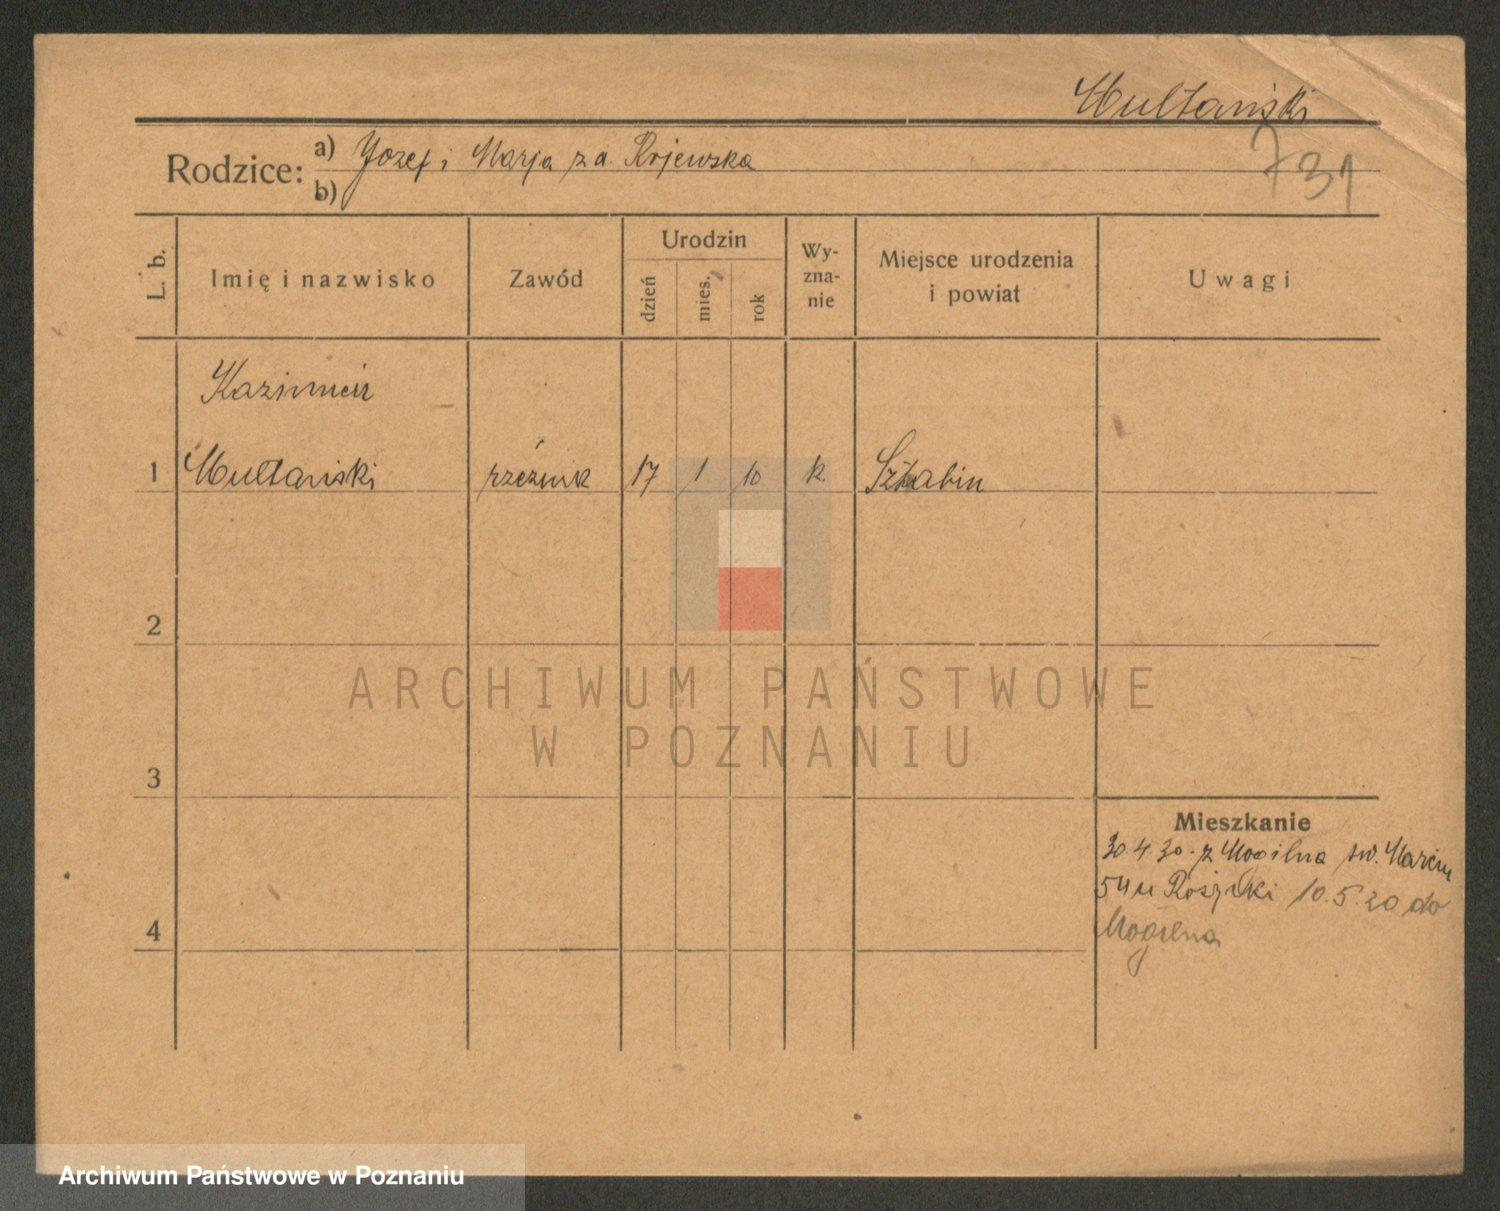 Multański
Rodzice: a) Józef i Marja z d. Rojewska
731
b)
L. b. Imię i nazwisko Zawód Urodzin dzień mies. rok Wy-zna-nie Miejsce urodzenia i powiat Uwagi
Kazimierz
1 Multański rzeźnik 17 1 10 k. Sztabin
2
3
4
Mieszkanie
30.4.30. z Mogilna św. Marcin
54 u 10.5.30 do
Mogilna
ARCHIWUM PAŃSTWOWE
W POZNANIU
Archiwum Państwowe w Poznaniu